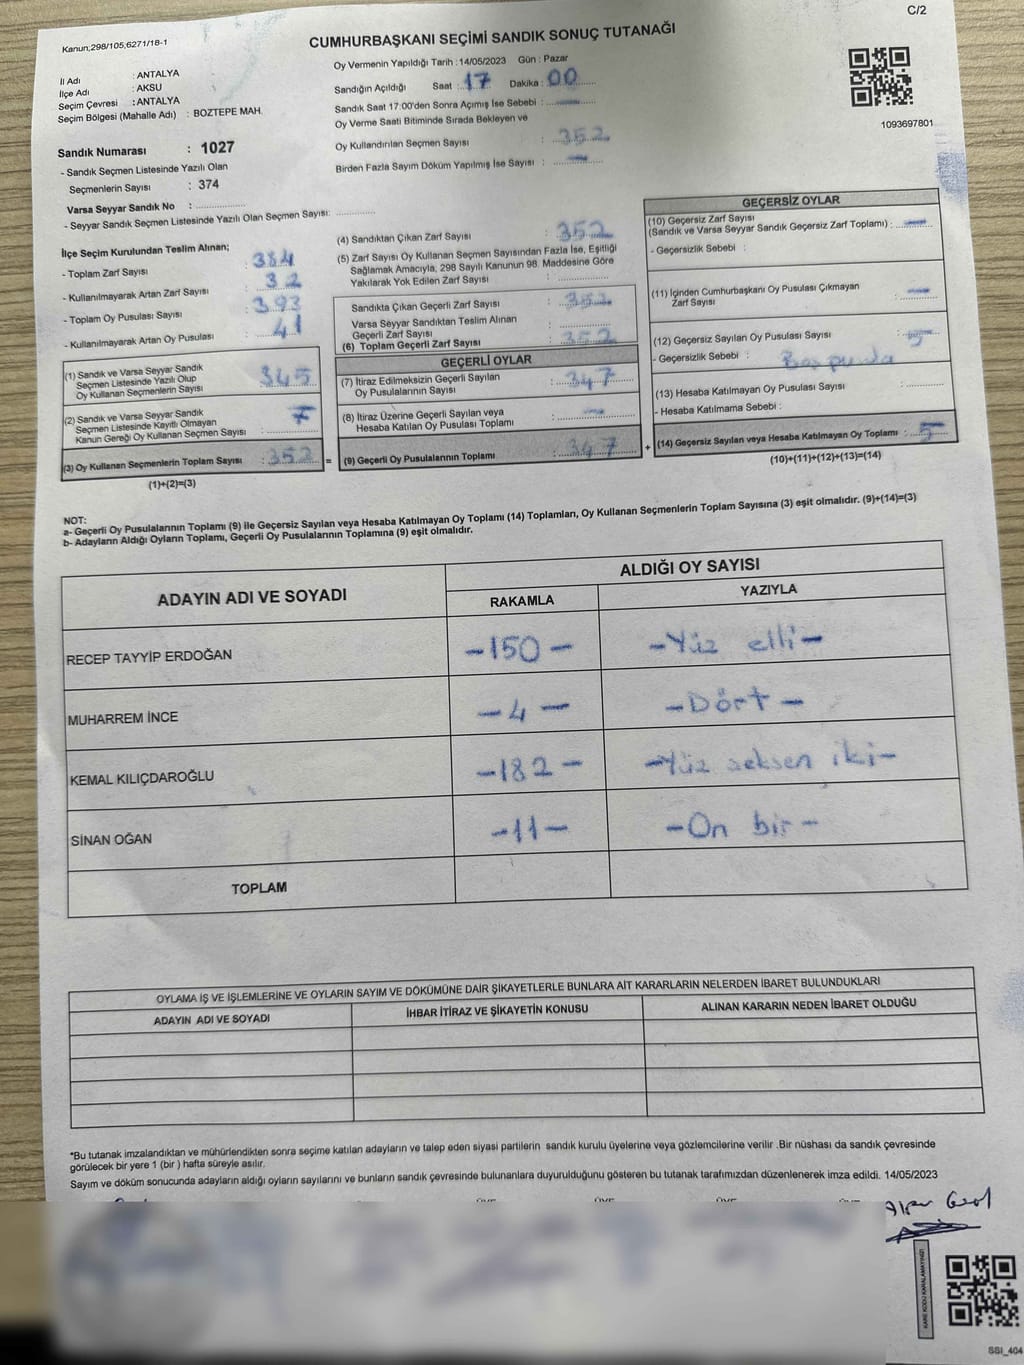 C/2
Kanun;298/105,6271/18-1
CUMHURBAŞKANI SEÇİMİ SANDIK SONUÇ TUTANAĞI
İl Adı : ANTALYA
İlçe Adı : AKSU
Seçim Çevresi : ANTALYA
Seçim Bölgesi (Mahalle Adı) : BOZTEPE MAH.
Sandık Numarası : 1027
- Sandık Seçmen Listesinde Yazılı Olan
Seçmenlerin Sayısı : 374
Varsa Seyyar Sandık No :
- Seyyar Sandık Seçmen Listesinde Yazılı Olan Seçmen Sayısı:
Oy Vermenin Yapıldığı Tarih : 14/05/2023 Gün : Pazar
Sandığın Açıldığı Saat : 17 Dakika : 00
Sandık Saat 17:00'den Sonra Açımış İse Sebebi : —
Oy Verme Saati Bitiminde Sırada Bekleyen ve
Oy Kullandırılan Seçmen Sayısı : 352
Birden Fazla Sayım Döküm Yapılmış İse Sayısı : —
1093697801
İlçe Seçim Kurulundan Teslim Alınan;
- Toplam Zarf Sayısı : 384
- Kullanılmayarak Artan Zarf Sayısı : 32
- Toplam Oy Pusulası Sayısı : 393
- Kullanılmayarak Artan Oy Pusulası : 41
(1) Sandık ve Varsa Seyyar Sandık
Seçmen Listesinde Yazılı Olup
Oy Kullanan Seçmenlerin Sayısı : 345
(2) Sandık ve Varsa Seyyar Sandık
Seçmen Listesinde Kayıtlı Olmayan
Kanun Gereği Oy Kullanan Seçmen Sayısı : 7
(3) Oy Kullanan Seçmenlerin Toplam Sayısı : 352 =
(1)+(2)=(3)
(4) Sandıktan Çıkan Zarf Sayısı : 352
(5) Zarf Sayısı Oy Kullanan Seçmen Sayısından Fazla İse, Eşitliği
Sağlamak Amacıyla, 298 Sayılı Kanunun 98. Maddesine Göre
Yakılarak Yok Edilen Zarf Sayısı :
Sandıkta Çıkan Geçerli Zarf Sayısı : 352
Varsa Seyyar Sandıktan Teslim Alınan
Geçerli Zarf Sayısı :
(6) Toplam Geçerli Zarf Sayısı : 352
GEÇERLİ OYLAR
(7) İtiraz Edilmeksizin Geçerli Sayılan
Oy Pusulalarının Sayısı : 347
(8) İtiraz Üzerine Geçerli Sayılan veya
Hesaba Katılan Oy Pusulası Toplamı : —
(9) Geçerli Oy Pusulalarının Toplamı : 347 +
GEÇERSİZ OYLAR
(10) Geçersiz Zarf Sayısı
(Sandık ve Varsa Seyyar Sandık Geçersiz Zarf Toplamı) : —
- Geçersizlik Sebebi :
(11) İçinden Cumhurbaşkanı Oy Pusulası Çıkmayan
Zarf Sayısı : —
(12) Geçersiz Sayılan Oy Pusulası Sayısı : 5
- Geçersizlik Sebebi :
(13) Hesaba Katılmayan Oy Pusulası Sayısı :
- Hesaba Katılmama Sebebi :
(14) Geçersiz Sayılan veya Hesaba Katılmayan Oy Toplamı : 5
(10)+(11)+(12)+(13)=(14)
NOT:
a- Geçerli Oy Pusulalarının Toplamı (9) ile Geçersiz Sayılan veya Hesaba Katılmayan Oy Toplamı (14) Toplamları, Oy Kullanan Seçmenlerin Toplam Sayısına (3) eşit olmalıdır. (9)+(14)=(3)
b- Adayların Aldığı Oyların Toplamı, Geçerli Oy Pusulalarının Toplamına (9) eşit olmalıdır.
ADAYIN ADI VE SOYADI
ALDIĞI OY SAYISI
RAKAMLA YAZIYLA
RECEP TAYYİP ERDOĞAN -150- -Yüz elli-
MUHARREM İNCE -4- -Dört-
KEMAL KILIÇDAROĞLU -182- -Yüz seksen iki-
SİNAN OĞAN -11- -On bir-
TOPLAM
OYLAMA İŞ VE İŞLEMLERİNE VE OYLARIN SAYIM VE DÖKÜMÜNE DAİR ŞİKAYETLERLE BUNLARA AİT KARARLARIN NELERDEN İBARET BULUNDUKLARI
ADAYIN ADI VE SOYADI İHBAR İTİRAZ VE ŞİKAYETİN KONUSU ALINAN KARARIN NEDEN İBARET OLDUĞU
*Bu tutanak imzalandıktan ve mühürlendikten sonra seçime katılan adayların ve talep eden siyasi partilerin sandık kurulu üyelerine veya gözlemcilerine verilir .Bir nüshası da sandık çevresinde
görülecek bir yere 1 (bir ) hafta süreyle asılır.
Sayım ve döküm sonucunda adayların aldığı oyların sayılarını ve bunların sandık çevresinde bulunanlara duyurulduğunu gösteren bu tutanak tarafımızdan düzenlenerek imza edildi. 14/05/2023
KARE KODU KARALAMAYINIZ!
SSI_404